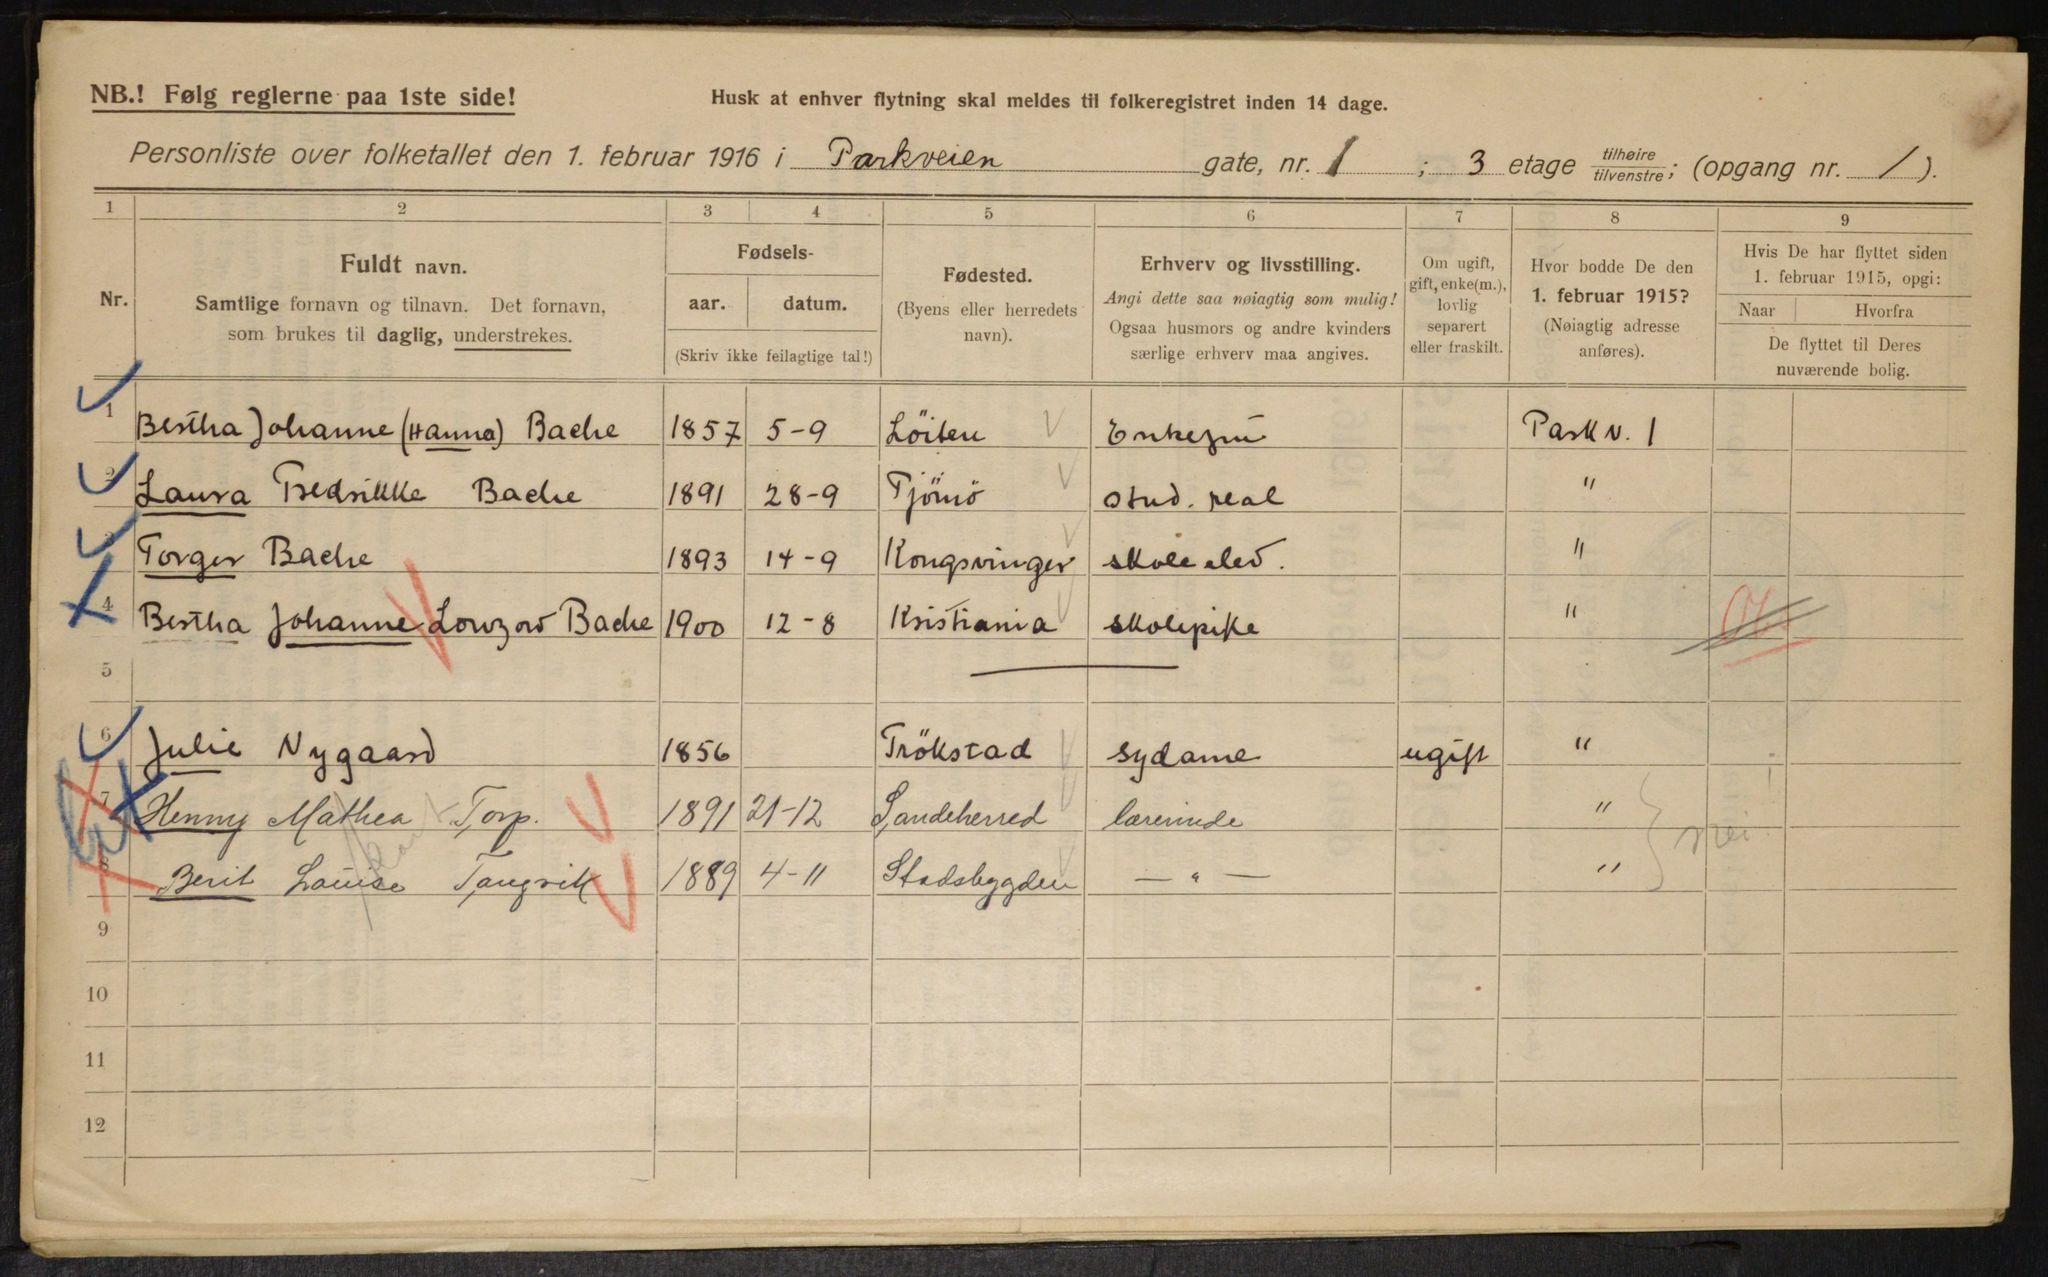 NB.! Følg reglerne paa 1ste side!
Husk at enhver flytning skal meldes til folkeregistret inden 14 dage.
Personliste over folketallet den 1. februar 1916 i Parkveien gate, nr. 1; 3 etage tilhøire/tilvenstre; (opgang nr. 1).
1 2 3 4 5 6 7 8 9
Nr.
Fuldt navn.
Samtlige fornavn og tilnavn. Det fornavn,
som brukes til daglig, understrekes.
Fødsels-
aar. datum.
(Skriv ikke feilagtige tal!)
Fødested.
(Byens eller herredets
navn).
Erhverv og livsstilling.
Angi dette saa nøiagtig som mulig!
Ogsaa husmors og andre kvinders
særlige erhverv maa angives.
Om ugift,
gift, enke(m.),
lovlig
separert
eller fraskilt.
Hvor bodde De den
1. februar 1915?
(Nøiagtig adresse
anføres).
Hvis De har flyttet siden
1. februar 1915, opgi:
Naar Hvorfra
De flyttet til Deres
nuværende bolig.
1 Bertha Johanne (Hanna) Bache 1857 5-9 Löiten Enkefru Parkv. 1
2 Laura Fredrikke Bache 1891 28-9 Tjömö stud. real "
3 Torger Bache 1893 14-9 Kongsvinger skoleelev. "
4 Bertha Johanne Lowzow Bache 1900 12-8 Kristiania skolepike "
5
6 Julie Nygaard 1856 Trökstad sydame ugift "
7 Henny Mathea Torp. 1891 21-12 Sandeherred lærerinde "
nei!
8 Berit Louise Tangvik 1889 4-11 Stadsbygden — " — "
9
10
11
12